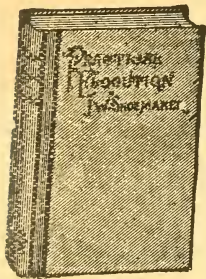 PRACTICAL
ELOCUTION
J.W. SHOEMAKER